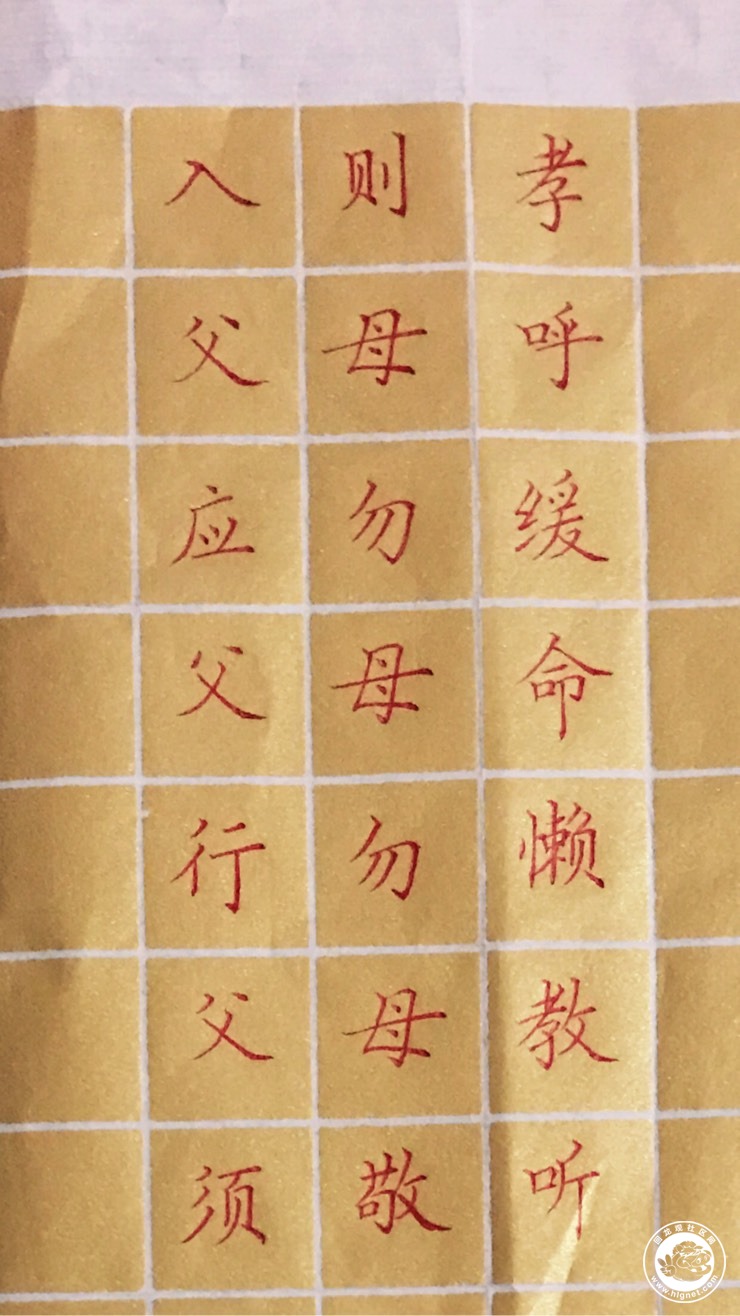 入则孝
父母呼
应勿缓
父母命
行勿懒
父母教
须敬听
回龙观社区网
www.hlgnet.com